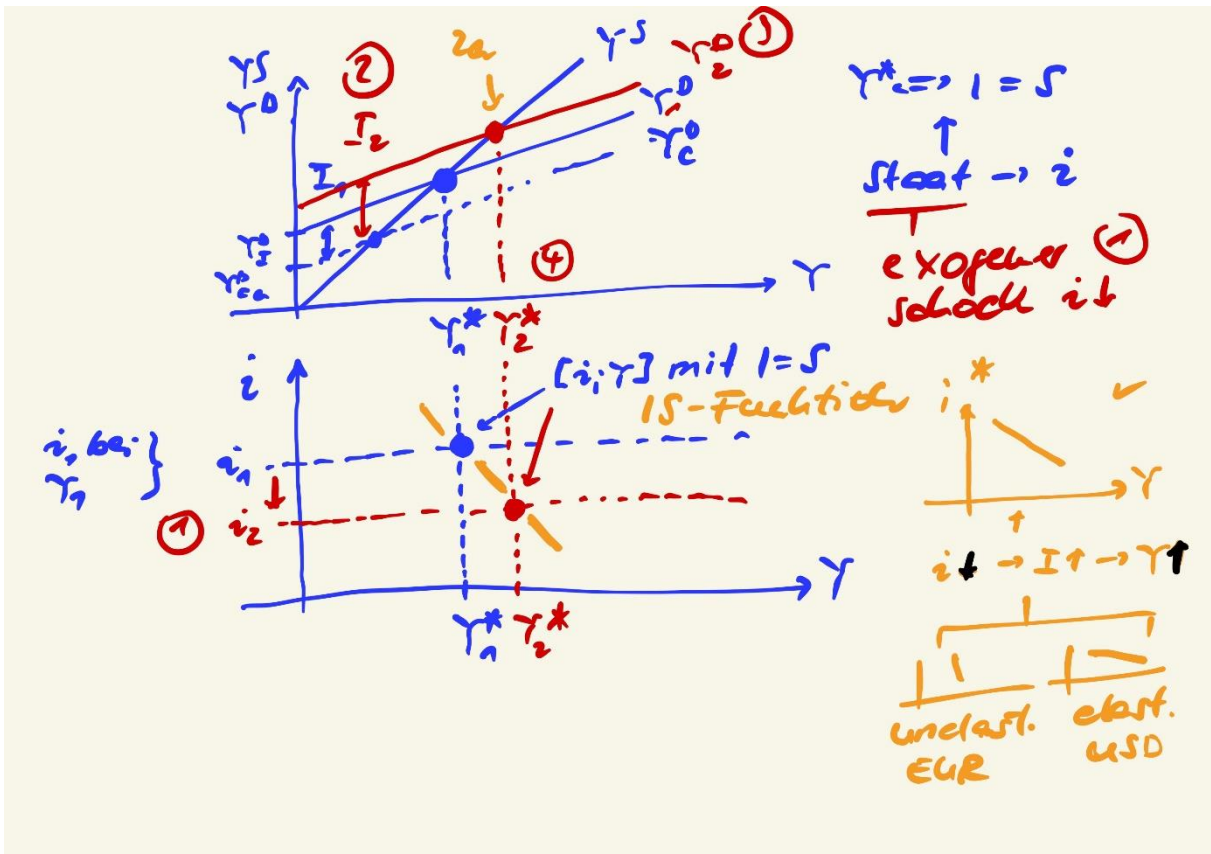 Y^S
Y^D
②
I_2
2a
Y^S
Y_2^D ③
Y_1^D
Y_C^D
I_1
Y_I^D
Y_Ca^D
④
Y
Y_1^* Y_2^*
Y^* <=> I = S
↑
Staat -> i
exogener ①
schock i↓
i
[i; Y] mit I = S
IS-Funktion
i_1 bei
Y_1 }
i_1
① i_2
Y
Y_1^* Y_2^*
i * ✓
Y
↑
i↓ -> I↑ -> Y↑
unelast. elast.
EUR USD